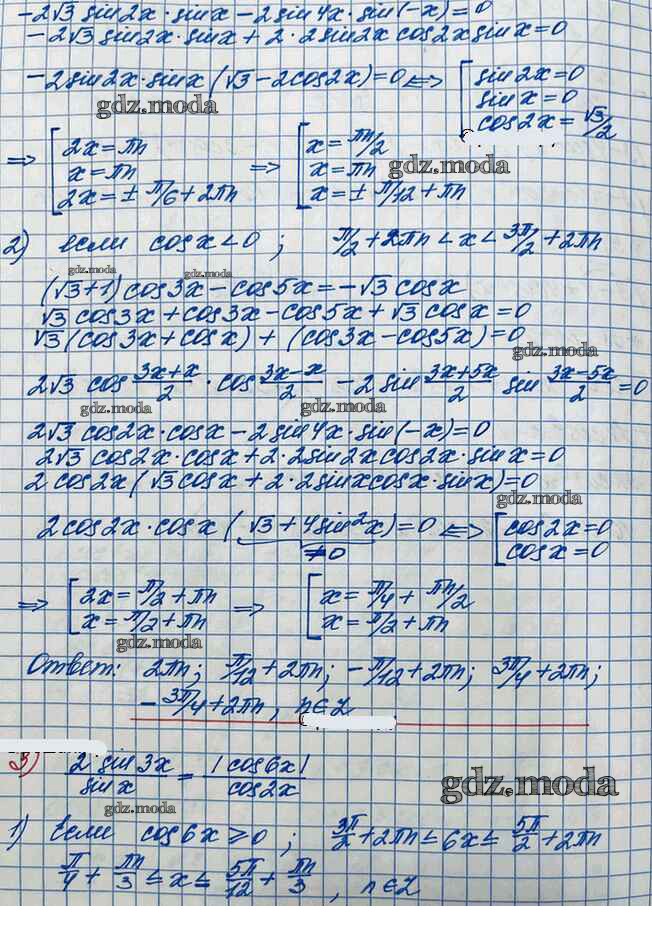 -2√3 sin2x·sinx - 2sin4x·sin(-x) = 0
-2√3 sin2x·sinx + 2·2sin2x cos2x sinx = 0
-2sin2x·sinx (√3 - 2cos2x) = 0 <=> [ sin2x = 0
sinx = 0
cos2x = √3/2
gdz.moda
=> [ 2x = πn
x = πn
2x = ± π/6 + 2πn
=> [ x = πn/2
x = πn
x = ± π/12 + πn
gdz.moda
2) если cosx < 0 ; π/2 + 2πn < x < 3π/2 + 2πn
gdz.moda
gdz.moda
(√3+1) cos3x - cos5x = -√3 cosx
√3 cos3x + cos3x - cos5x + √3 cosx = 0
√3 (cos3x + cosx) + (cos3x - cos5x) = 0
gdz.moda
2√3 cos (3x+x)/2 · cos (3x-x)/2 - 2 sin (3x+5x)/2 sin (3x-5x)/2 = 0
gdz.moda
gdz.moda
2√3 cos2x·cosx - 2sin4x·sin(-x) = 0
2√3 cos2x·cosx + 2·2sin2x cos2x·sinx = 0
2 cos2x (√3 cosx + 2·2sinx cosx·sinx) = 0
gdz.moda
2 cos2x·cosx (√3 + 4sin²x) = 0 <=> [ cos2x = 0
≠0
cosx = 0
=> [ 2x = π/2 + πn
x = π/2 + πn
=> [ x = π/4 + πn/2
x = π/2 + πn
gdz.moda
Ответ: 2πn; π/12 + 2πn; -π/12 + 2πn; 3π/4 + 2πn;
-3π/4 + 2πn, n∈Z
3) 2 sin3x / sinx = |cos6x| / cos2x
gdz.moda
gdz.moda
1) Если cos6x ≥ 0 ; 3π/2 + 2πn ≤ 6x ≤ 5π/2 + 2πn
π/4 + πn/3 ≤ x ≤ 5π/12 + πn/3 , n∈Z